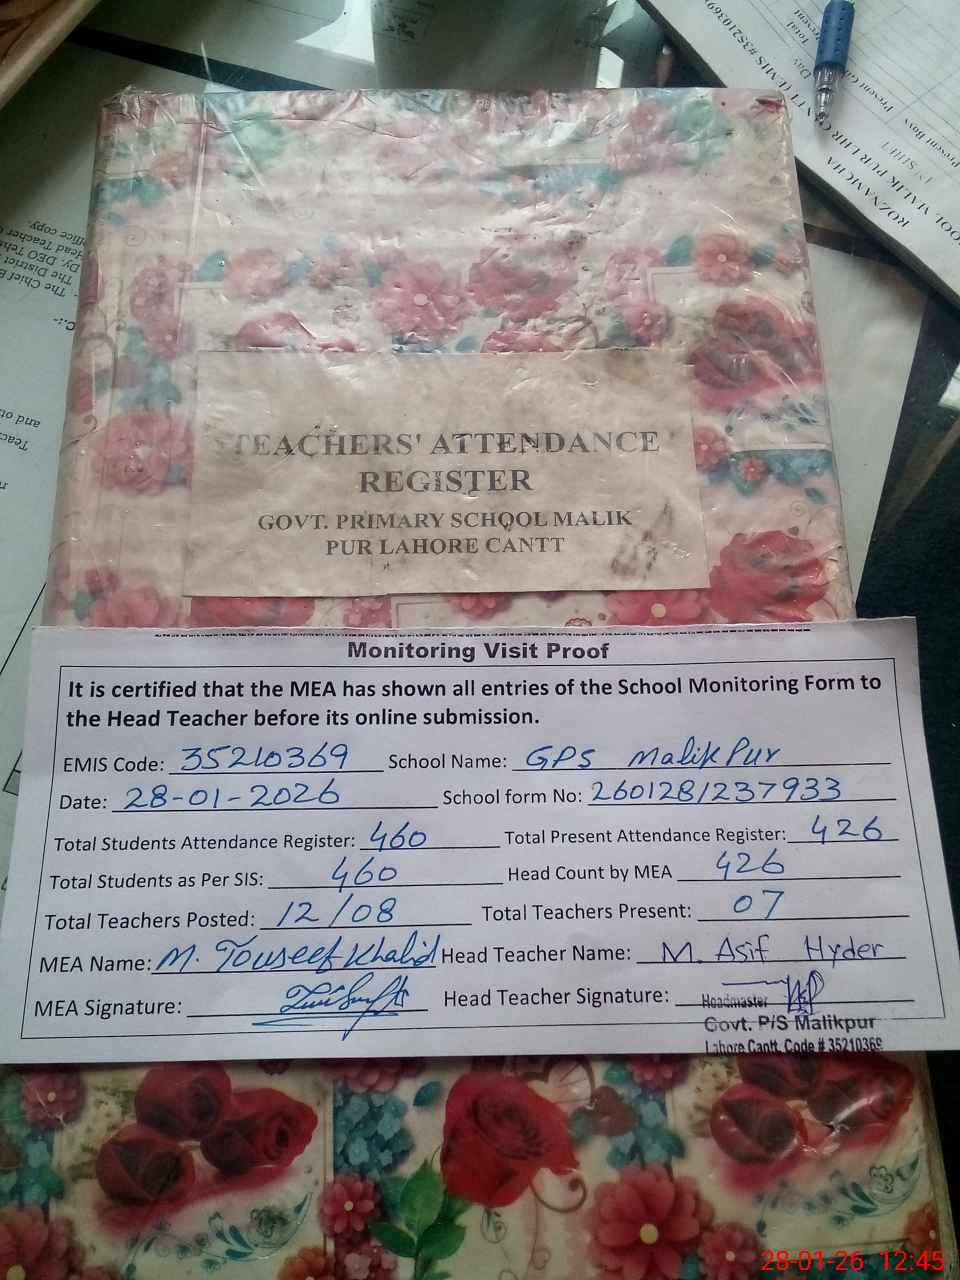 OOL MALIK PUR LHR CANTT (EMIS #35210369
ROZNAMCHA
1st SHIFT
Present Boys
Present
Day
Total
ffice copy.
Head Teacher
Dy. DEO
The District
The Chief
C.:-
and
Teac
TEACHERS' ATTENDANCE
REGISTER
GOVT. PRIMARY SCHOOL MALIK
PUR LAHORE CANTT
Monitoring Visit Proof
It is certified that the MEA has shown all entries of the School Monitoring Form to
the Head Teacher before its online submission.
EMIS Code: 35210369 School Name: GPS Malik Pur
Date: 28-01-2026 School form No: 260128/237933
Total Students Attendance Register: 460 Total Present Attendance Register: 426
Total Students as Per SIS: 460 Head Count by MEA 426
Total Teachers Posted: 12/08 Total Teachers Present: 07
MEA Name: M. Touseef Khalid Head Teacher Name: M. Asif Hyder
MEA Signature: Head Teacher Signature:
Headmaster
Govt. P/S Malikpur
Lahore Cantt. Code # 35210369
28-01-26 12:45